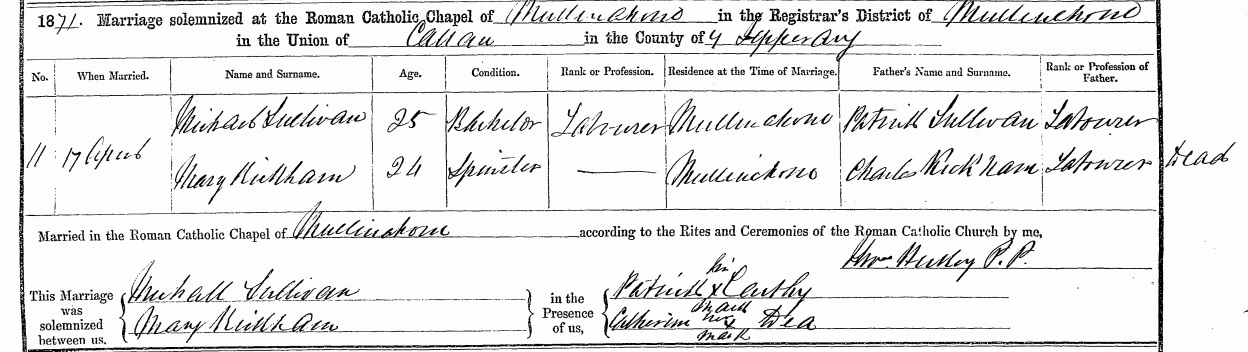 1871. Marriage solemnized at the Roman Catholic Chapel of Mullinahone in the Registrar's District of Mullinahone
in the Union of Callan in the County of Tipperary
No. When Married. Name and Surname. Age. Condition. Rank or Profession. Residence at the Time of Marriage. Father's Name and Surname. Rank or Profession of Father.
Michael Sullivan 25 Bachelor Labourer Mullinahone Patrick Sullivan Labourer
11 17 April
Mary Kickham 24 Spinster Mullinahone Charles Kickham Labourer Dead
Married in the Roman Catholic Chapel of Mullinahone according to the Rites and Ceremonies of the Roman Catholic Church by me,
Thos P.P.
This Marriage was solemnized between us,
Michall Sullivan
Mary Kickham
in the Presence of us,
his
Patrick x
mark
Catherine her x Dea
mark